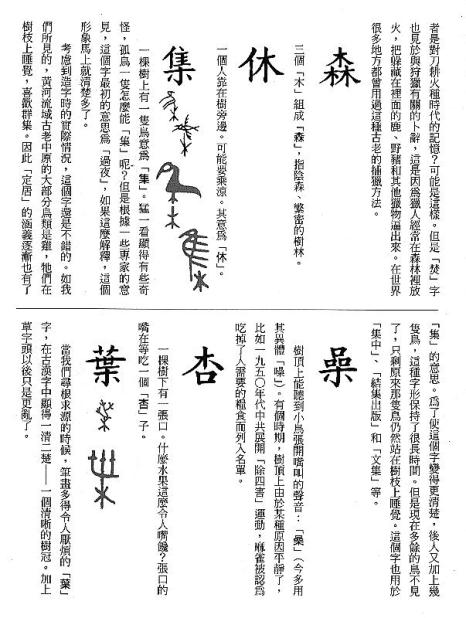 者是對刀耕火種時代的記憶？可能是這樣。但是「焚」字
也見於與狩獵有關的卜辭，這是因為獵人經常在森林裡放
火，把躲藏在裡面的鹿、野豬和其他獵物逼出來。在世界
很多地方都曾用過這種古老的捕獵方法。
森
三個「木」組成「森」，指陰森、繁密的樹林。
休
一個人靠在樹旁邊。可能要乘涼。其意為「休」。
集
一棵樹上有一隻鳥意為「集」。猛一看顯得有些奇
怪，孤鳥一隻怎麼能「集」呢？但是根據一些專家的意
見，這個字最初的意思為「過夜」，如果這麼解釋，這個
形象馬上就清楚多了。
考慮到造字時的實際情況，這個字還是不錯的。如我
們所見的，黃河流域古老中原的大部分鳥類是雞，牠們在
樹枝上睡覺，喜歡群集。因此「定居」的涵義逐漸也有了
「集」的意思。為了使這個字變得更清楚，後人又加上幾
隻鳥，這種字形保持了很長時間。但是現在多餘的鳥不見
了，只剩原來那隻鳥仍然站在樹枝上睡覺。這個字也用於
「集中」、「結集出版」和「文集」等。
喿
樹頂上能聽到小鳥張開嘴叫的聲音：「喿」（今多用
其異體「噪」）。有個時期，樹頂上由於某種原因平靜了，
比如一九五〇年代中共展開「除四害」運動，麻雀被認為
吃掉了人需要的糧食而列入名單。
杏
一棵樹下有一張口。什麼水果這麼令人嘴饞？張口的
嘴在等吃一個「杏」子。
葉
當我們尋根求源的時候，筆畫多得令人厭煩的「葉」
字，在古漢字中顯得一清二楚——一個清晰的樹冠。加上
草字頭以後只是更亂了。